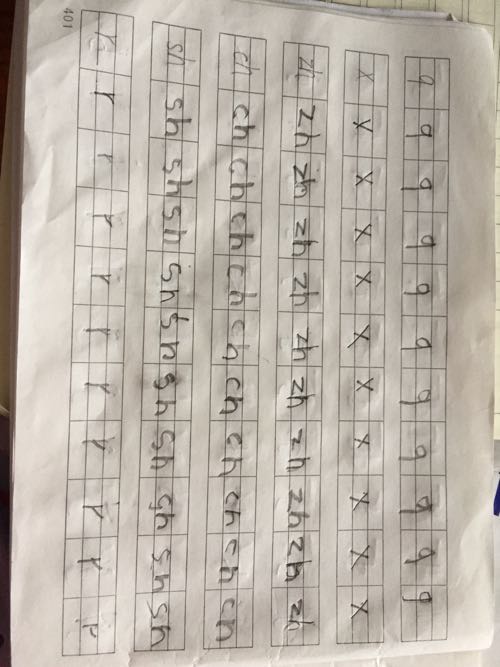 q q q q q q q q q q q
x x x x x x x x x x x
zh zh zh zh zh zh zh zh zh zh zh
ch ch ch ch ch ch ch ch ch ch ch
sh sh sh sh sh sh sh sh sh sh sh
r r r r r r r r r r r
401